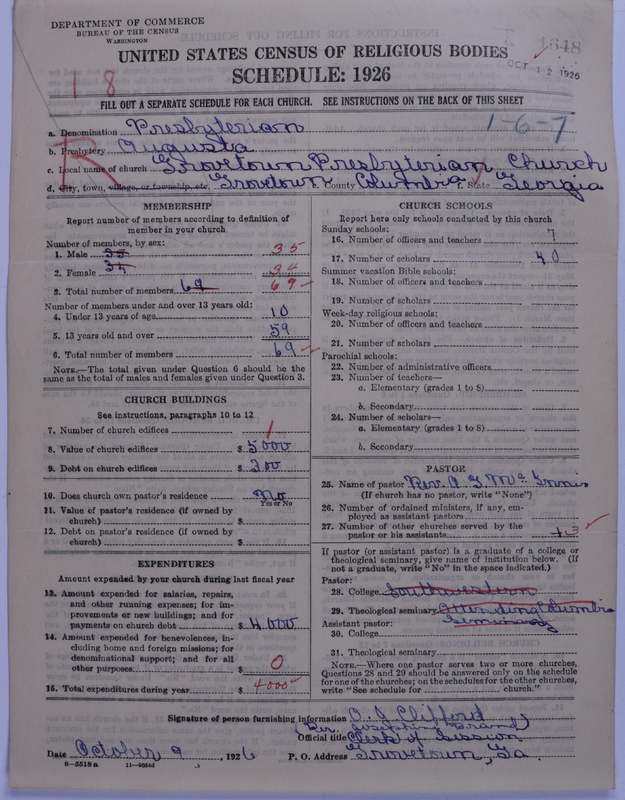 DEPARTMENT OF COMMERCE
BUREAU OF THE CENSUS
WASHINGTON
1648
OCT 12 1926
UNITED STATES CENSUS OF RELIGIOUS BODIES
SCHEDULE: 1926
18
FILL OUT A SEPARATE SCHEDULE FOR EACH CHURCH. SEE INSTRUCTIONS ON THE BACK OF THIS SHEET
R
1-6-7
a. Denomination Presbyterian
b. Presbytery Augusta
c. Local name of church Grovetown Presbyterian Church
d. City, town, village, or township, etc. Grovetown County Columbia f. State Georgia
MEMBERSHIP
Report number of members according to definition of
member in your church
Number of members, by sex:
1. Male 35 35
2. Female 34 34
3. Total number of members 69 69
Number of members under and over 13 years old:
4. Under 13 years of age 10
5. 13 years old and over 59
6. Total number of members 69
NOTE.—The total given under Question 6 should be the
same as the total of males and females given under Question 3.
CHURCH BUILDINGS
See instructions, paragraphs 10 to 12
7. Number of church edifices 1
8. Value of church edifices $ 5000
9. Debt on church edifices $ 300
10. Does church own pastor's residence No
Yes or No
11. Value of pastor's residence (if owned by
church) $
12. Debt on pastor's residence (if owned by
church) $
EXPENDITURES
Amount expended by your church during last fiscal year
13. Amount expended for salaries, repairs,
and other running expenses; for im-
provements or new buildings; and for
payments on church debt $ 4000
14. Amount expended for benevolences, in-
cluding home and foreign missions; for
denominational support; and for all
other purposes $ 0
15. Total expenditures during year $ 4000
CHURCH SCHOOLS
Report here only schools conducted by this church
Sunday schools:
16. Number of officers and teachers 7
17. Number of scholars 40
Summer vacation Bible schools:
18. Number of officers and teachers
19. Number of scholars
Week-day religious schools:
20. Number of officers and teachers
21. Number of scholars
Parochial schools:
22. Number of administrative officers
23. Number of teachers—
a. Elementary (grades 1 to 8)
b. Secondary
24. Number of scholars—
a. Elementary (grades 1 to 8)
b. Secondary
PASTOR
25. Name of pastor Rev. A. G. McInnis
(If church has no pastor, write "None")
26. Number of ordained ministers, if any, em-
ployed as assistant pastors
27. Number of other churches served by the
pastor or his assistants 3
If pastor (or assistant pastor) is a graduate of a college or
theological seminary, give name of institution below. (If
not a graduate, write "No" in the space indicated.)
Pastor:
28. College Southwestern
29. Theological seminary Attending Columbia
Seminary
Assistant pastor:
30. College
31. Theological seminary
NOTE.—Where one pastor serves two or more churches,
Questions 28 and 29 should be answered only on the schedule
for one of the churches; on the schedules for the other churches,
write "See schedule for church."
Signature of person furnishing information O. J. Clifford
Official title Clerk of Session
Date October 9, 1926 P. O. Address Grovetown, Ga.
8-5518a 11-9554d